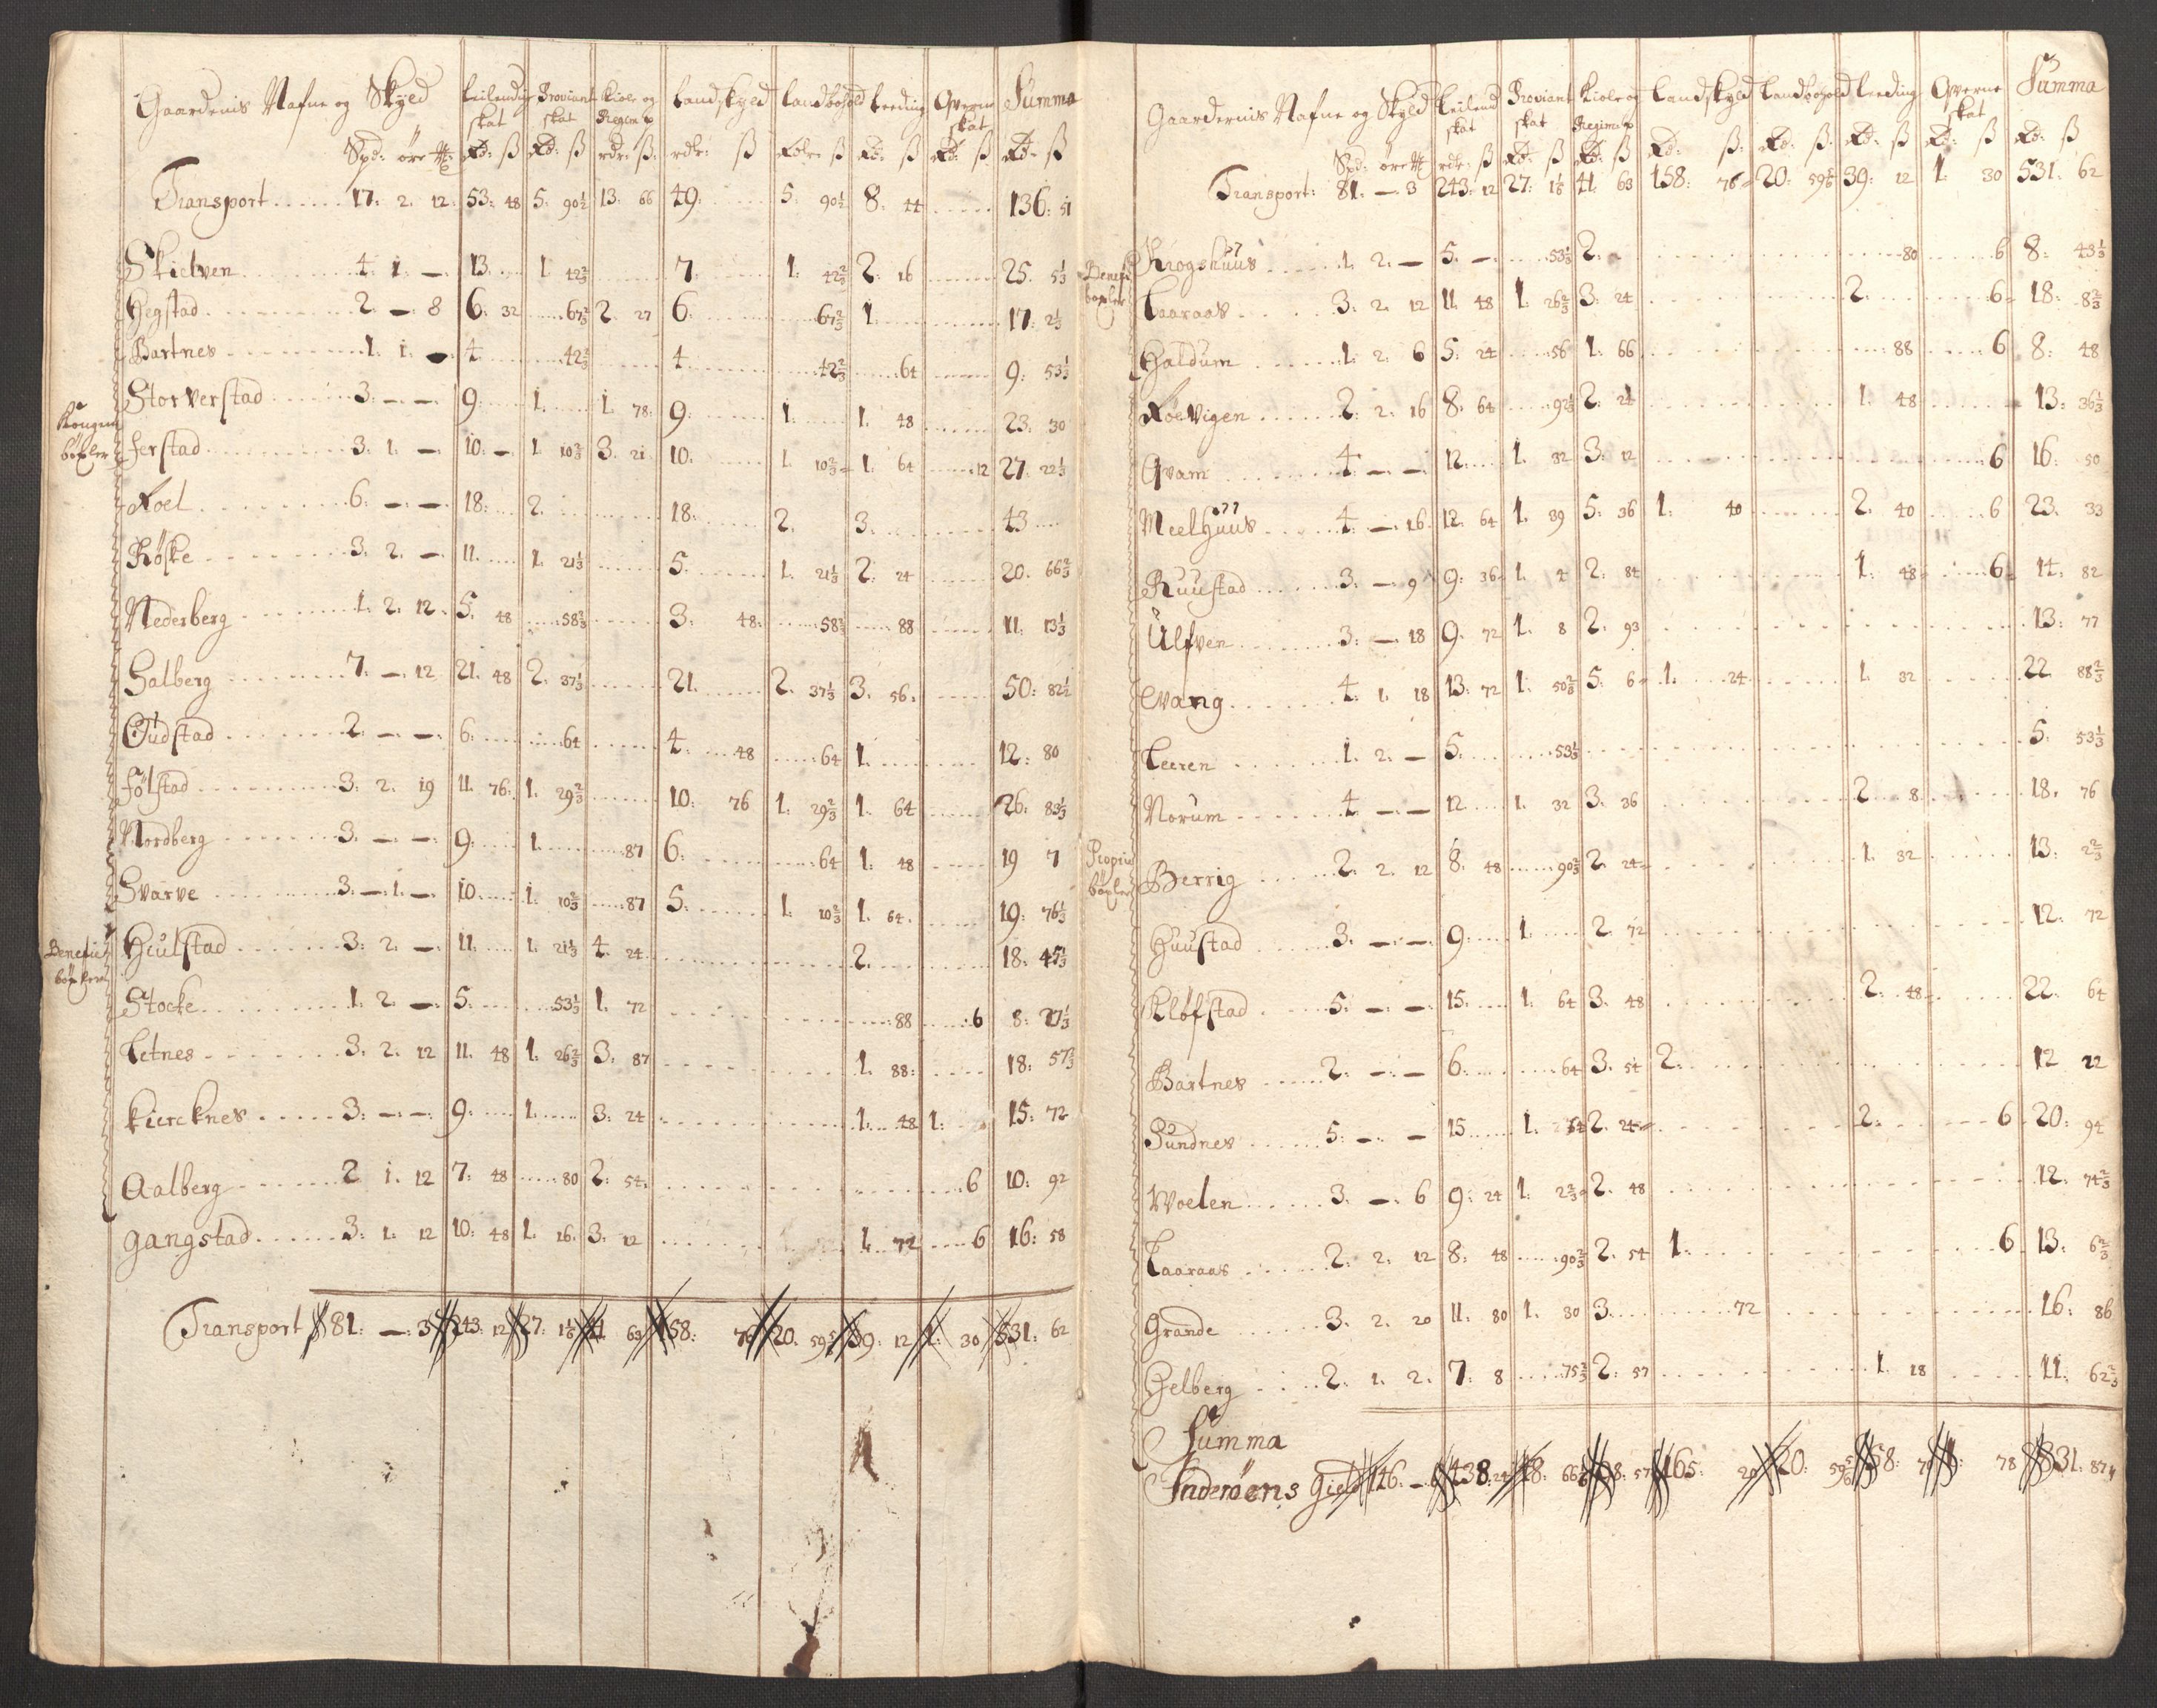 Gaardenis Nafne og Skyld Leilending skat Proviant skat Kiole og Regim p Landskyld Landbohold Leeding Qverne skat Summa
Spd: öre ℔ Rd: ß Rd: ß rdr: ß rdr: ß Rdr: ß Rd: ß Rd: ß Rd: ß
Transport 17: 2. 12. 53: 48 5. 90½ 13. 66 49. 5. 90½ 8. 44 136: 51
Skielven 4. 1. — 13. 1. 42⅔ 7. 1. 42⅔ 2. 16 25. 5⅓
Hegstad 2. — 8 6. 32 67⅔ 2. 27 6. 67⅔ 1. 17. 2⅓
Bartnes 1. 1. — 4. 42⅔ 4. 42⅔ 64 9. 53⅓
Kongens böxler
Storverstad 3. — — 9. 1. 1. 78. 9. 1. 1. 48 23. 30
ferstad 3. 1. — 10. — 1. 10⅔ 3. 21 10. 1. 10⅔ 1. 64 12 27. 22⅓
Roel 6. — — 18: 2. 18: 2. 3. 43
Röske 3. 2. — 11. 1. 21⅓ 5. 1. 21⅓ 2. 24 20. 66⅔
Nederberg 1. 2. 12. 5. 48 58⅔ 3. 48. 58⅔ 88 11. 13⅓
Salberg 7. — 12 21. 48 2. 37⅓ 21. 2. 37⅓ 3. 56. 50: 82½
Oudstad 2. — — 6. 64 4. 48 64 1. 12: 80
fölstad 3. 2. 19 11. 76. 1. 29⅔ 10: 76 1. 29⅔ 1. 64 26: 83⅓
Nordberg 3. — — 9. 1. 87 6. 64 1. 48 19 7
Svarve 3. — 1. — 10. 1. 10⅔ 87 5. 1. 10⅔ 1. 64. 19: 76⅓
Benefic: böxler
Hiulstad 3. 2. — 11. 1. 21⅓ 4. 24 2. 18. 45⅓
Stocke 1. 2. — 5. 53⅓ 1. 72 88 6 8: 27⅓
Letnes 3. 2. 12 11. 48 1. 26⅔ 3. 87 1. 88: 18: 57⅔
Kiercknes 3: — — 9. 1. 3. 24 1. 48 1: 15: 72
Aalberg 2 1. 12 7. 48 80 2. 54. 6 10: 92
gangstad 3. 1. 12 10. 48 1. 16. 3. 12 1. 72 6 16: 58
Transport 81: — 3 243 12 27: 1⅙ 41 63 158: 76 20. 59⅚ 39: 12 1: 30 531: 62
Gaardernis Nafne og Skyld Leilend skat Proviant skat Kiole og Regim p Landskyld Landbohold Leeding Qverne skat Summa
Spd: öre ℔ rdr: ß Rd: ß Rd: ß Rd: ß Rd: ß Rd: ß Rd: ß Rd: ß
Transport: 81. — 3 243: 12 27: 1⅙ 41. 63 158: 76 20: 59⅚ 39: 12 1. 30 531. 62
Benefi böxler
Krogshuus 1. 2. — 5. — 53⅓ 2. 80 6 8: 43⅓
Laaraas 3. 2. 12 11. 48 1. 26⅔ 3. 24 2. 6 18: 8⅔
Haldum 1. 2. 6 5. 24 56 1. 66 88 6 8: 48
Roelvigen 2. 2. 16 8. 64 92⅓ 2. 24 1. 48 13: 36⅓
Qvam 4. — — 12. 1. 32 3. 12 6 16: 50
Meelhuus 4. — 16. 12. 64 1. 39 5. 36 1. 40 2. 40 6 23. 33
Ruustad 3. — 9 9. 36 1. 4 2. 84 1. 48 6 14: 82
Ulfven 3. — 18 9. 72 1. 8 2. 93 13: 77
Evang 4. 1. 18 13. 72 1. 50⅔ 5. 6 1. 24 1. 32 22. 88⅔
Leeren 1. 2. — 5. 53⅓ 5. 53⅓
Norum 4. — — 12 1. 32 3. 36 2. 8 18. 76
Propri böxler
Berrig 2. 2. 12 8. 48 90⅔ 2. 24 1. 32 13: 2⅔
Huustad 3. — — 9. 1. 2. 72 12. 72
Klöfstad 5. — — 15. 1. 64 3. 48 2. 48 22. 64
Bartnes 2. — — 6. 64 3. 54 2. 12 22
Sundnes 5. — — 15. 1. 64 2. 24 2. 6 20: 94
Woelen 3. — 6 9. 24 1. 2⅔ 2. 48 12. 74⅔
Laaraas 2. 2. 12 8: 48 90⅔ 2. 54 1. 6. 13. 6⅔
Grande 3. 2. 20 11. 80 1. 30 3. 72 16: 86
Helberg 2. 1. 2. 7. 8 75⅓ 2. 57 1. 18 11. 62⅔
Summa
Inderöens Gield 146: — 438: 24 48: 66 98: 57 165: 20 20: 59⅚ 58: 78 831: 87